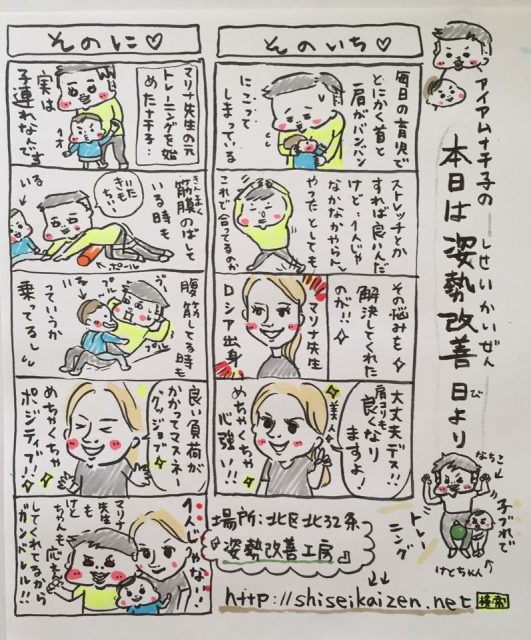 アイアムナチ子の
本日は姿勢改善日より
しせいかいぜん
び
なちこ
子づれで
トレーニング
けとちゃん
そのいち♡
毎日の育児で
とにかく首と
肩がバンバン
にこって
しまっている
ストレッチとか
すれば良いんだ
けど…1人じゃ
なかなかやらんし
やったとしても
これで合ってるのか
その悩みを
解決してくれた
のが!!
マリナ先生
ロシア出身
大丈夫デス!!
肩こりも
良くなり
ますよ!
美人
めちゃくちゃ
心強い!!
そのに♡
マリナ先生の元
トレーニングを始
めたナチ子…
実は
子連れなんです
筋膜のばしと
きんまく
いる時も
いたい
きもち
ちぃ
いる
ポール
腹筋してる時も
いる
プル
プル
っていうか
乗ってるし
良い負荷が
かかってマスネー
グッジョブ
めちゃくちゃ
ポジティブ!!
1人じゃない!!
マリナ
先生も
けと
ちゃんも応えん
してくれてるから
ガンバレル!!
場所:北区北32条
『姿勢改善工房』
http://shiseikaizen.net
検索